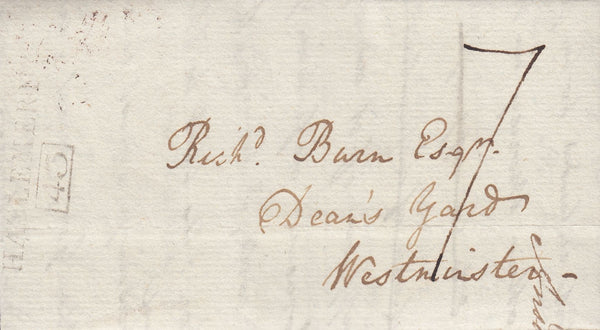 HASLEMERE
43
7
Richd. Burn Esqr.
Dean's Yard
Westminster